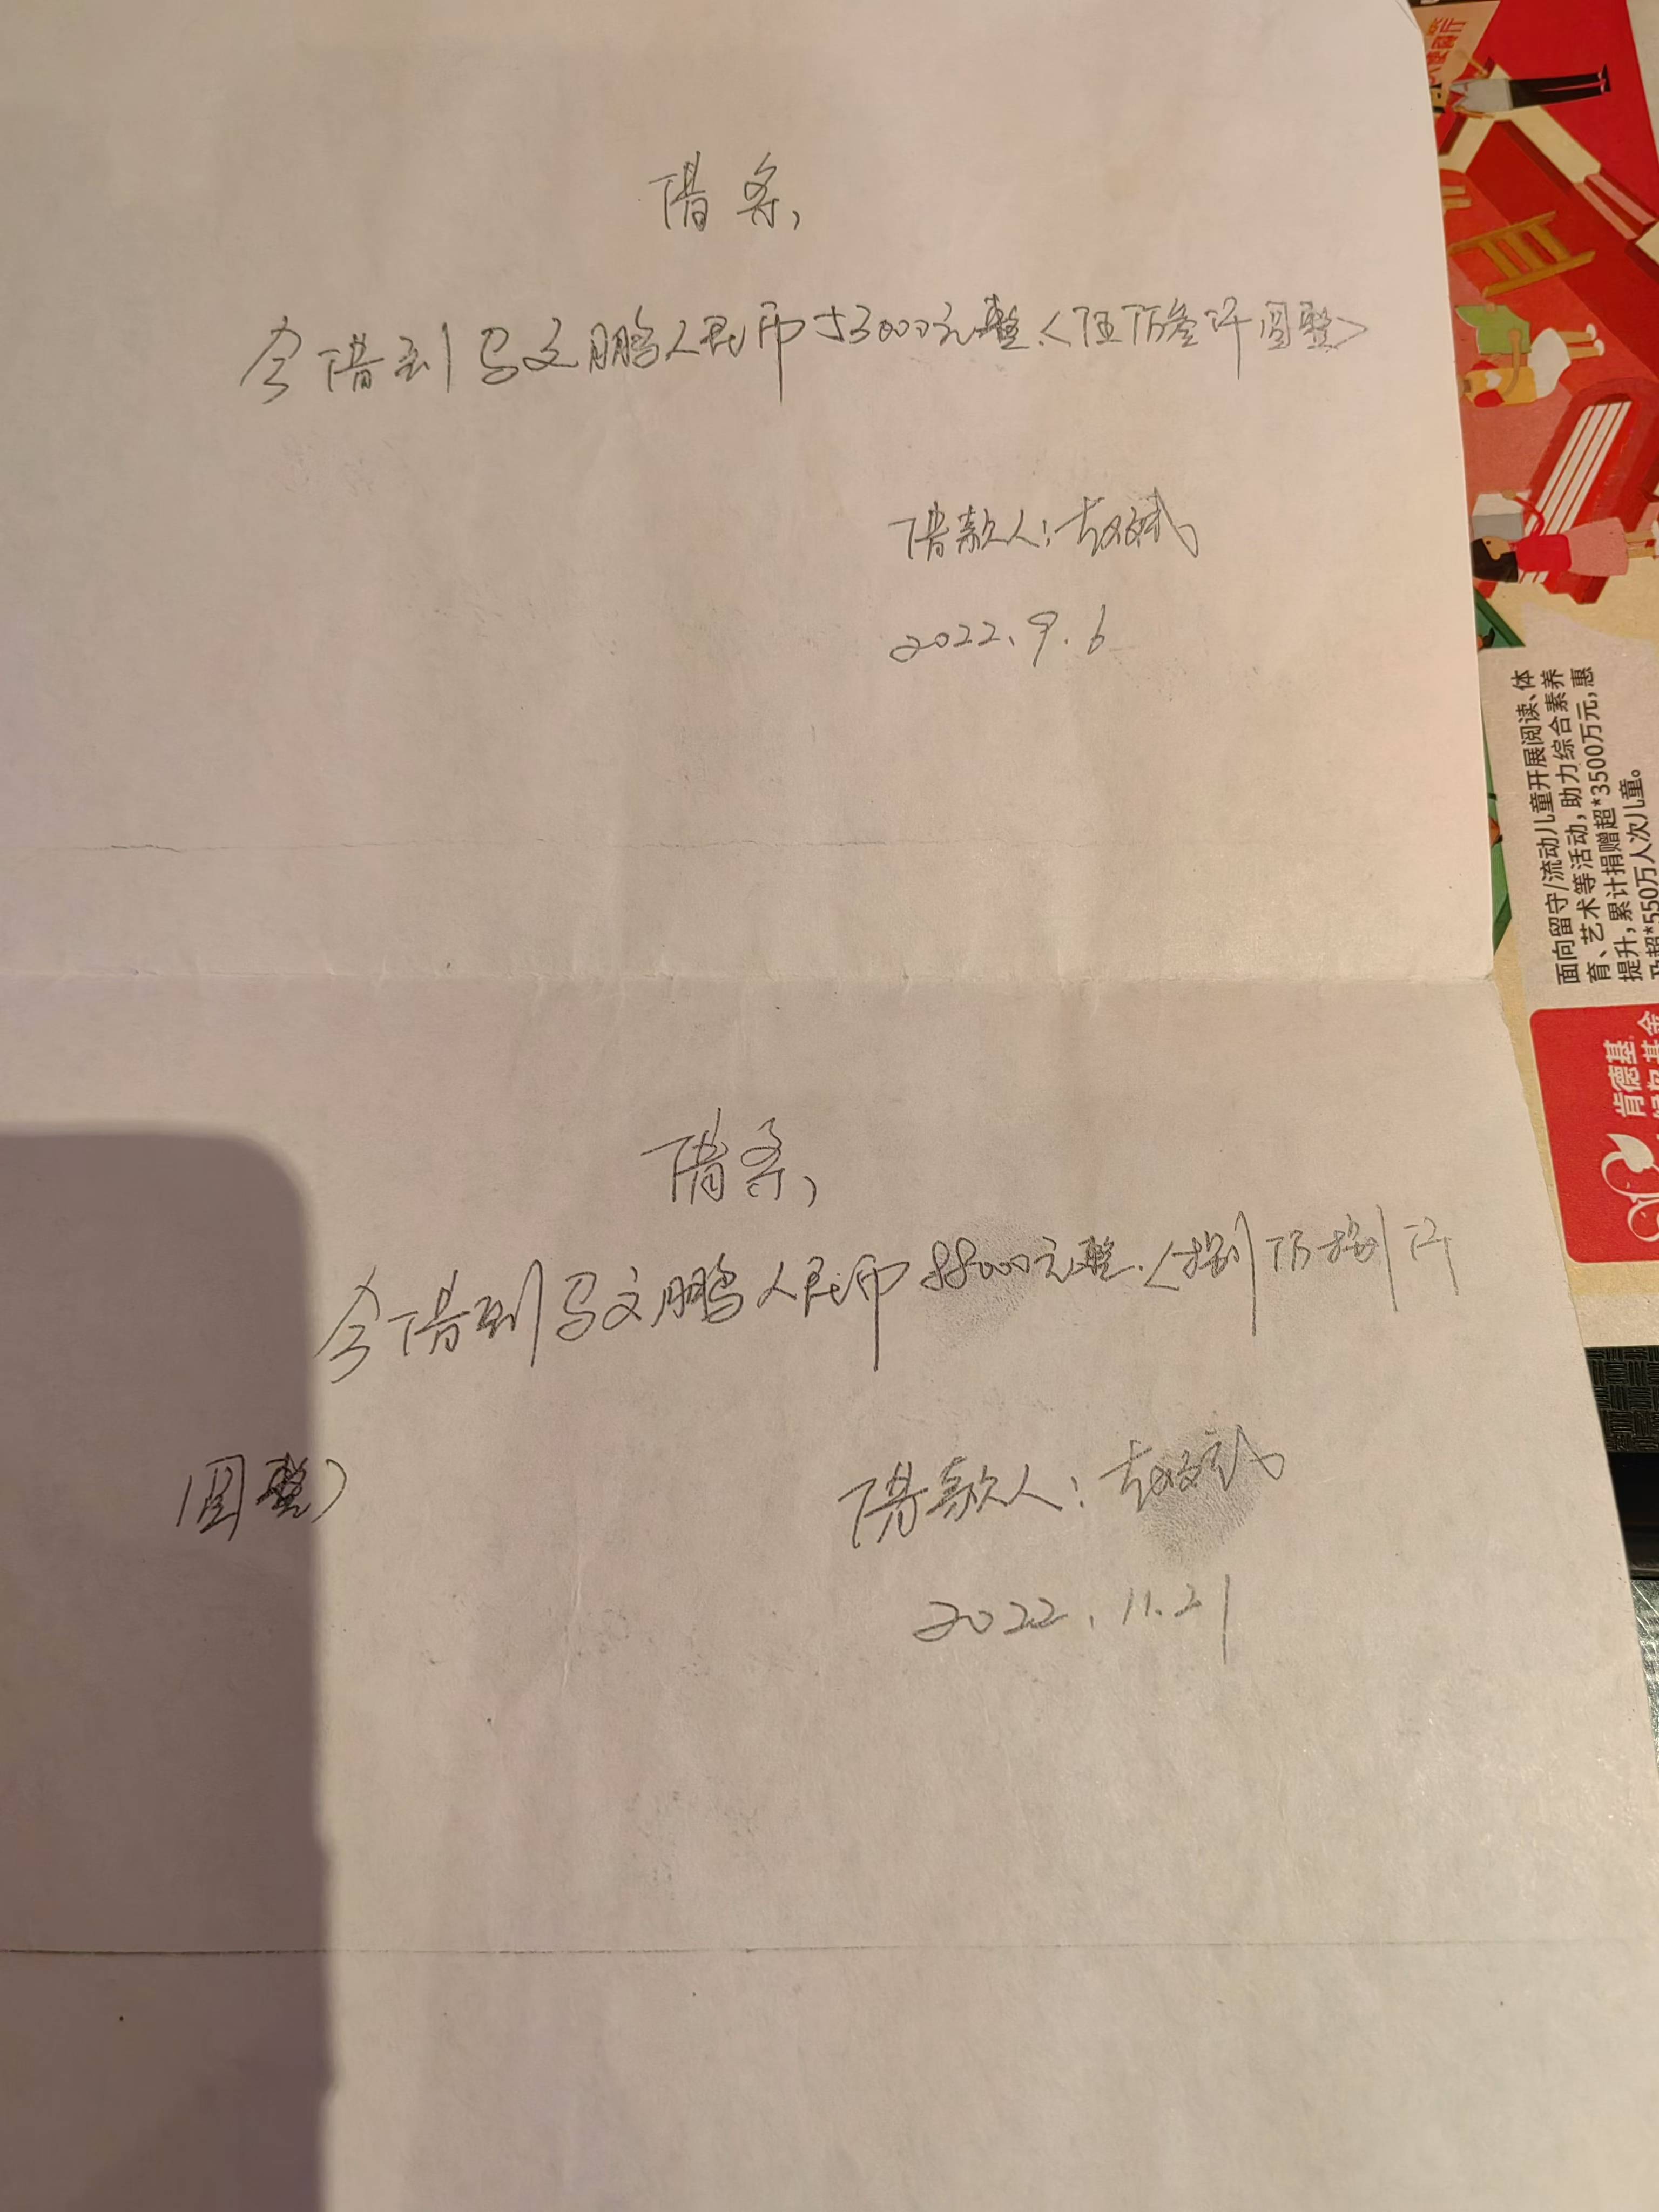 借条,
今借到马文鹏人民币53000元整<伍万叁仟圆整>
借款人:赵文斌
2022.9.6
借条,
今借到马文鹏人民币88000元整.<捌万捌仟
圆整)
借款人:赵文斌
2022.11.21
面向留守/流动儿童开展阅读、体
育、艺术等活动,助力综合素养
提升,累计捐赠超*3500万元,惠
及超*550万人次儿童。
肯德基
基金